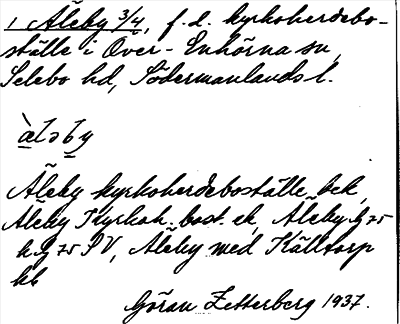 1 Åleby 3/4, f.d. kyrkoherdebo-
ställe i Över-Enhörna sn,
Selebo hd, Södermanlands l.
Åleby kyrkoherdeboställe bek,
Åleby Kyrkoh. bost. ek, Åleby
Åleby med Källtorp
kb
Göran Zetterberg 1937.